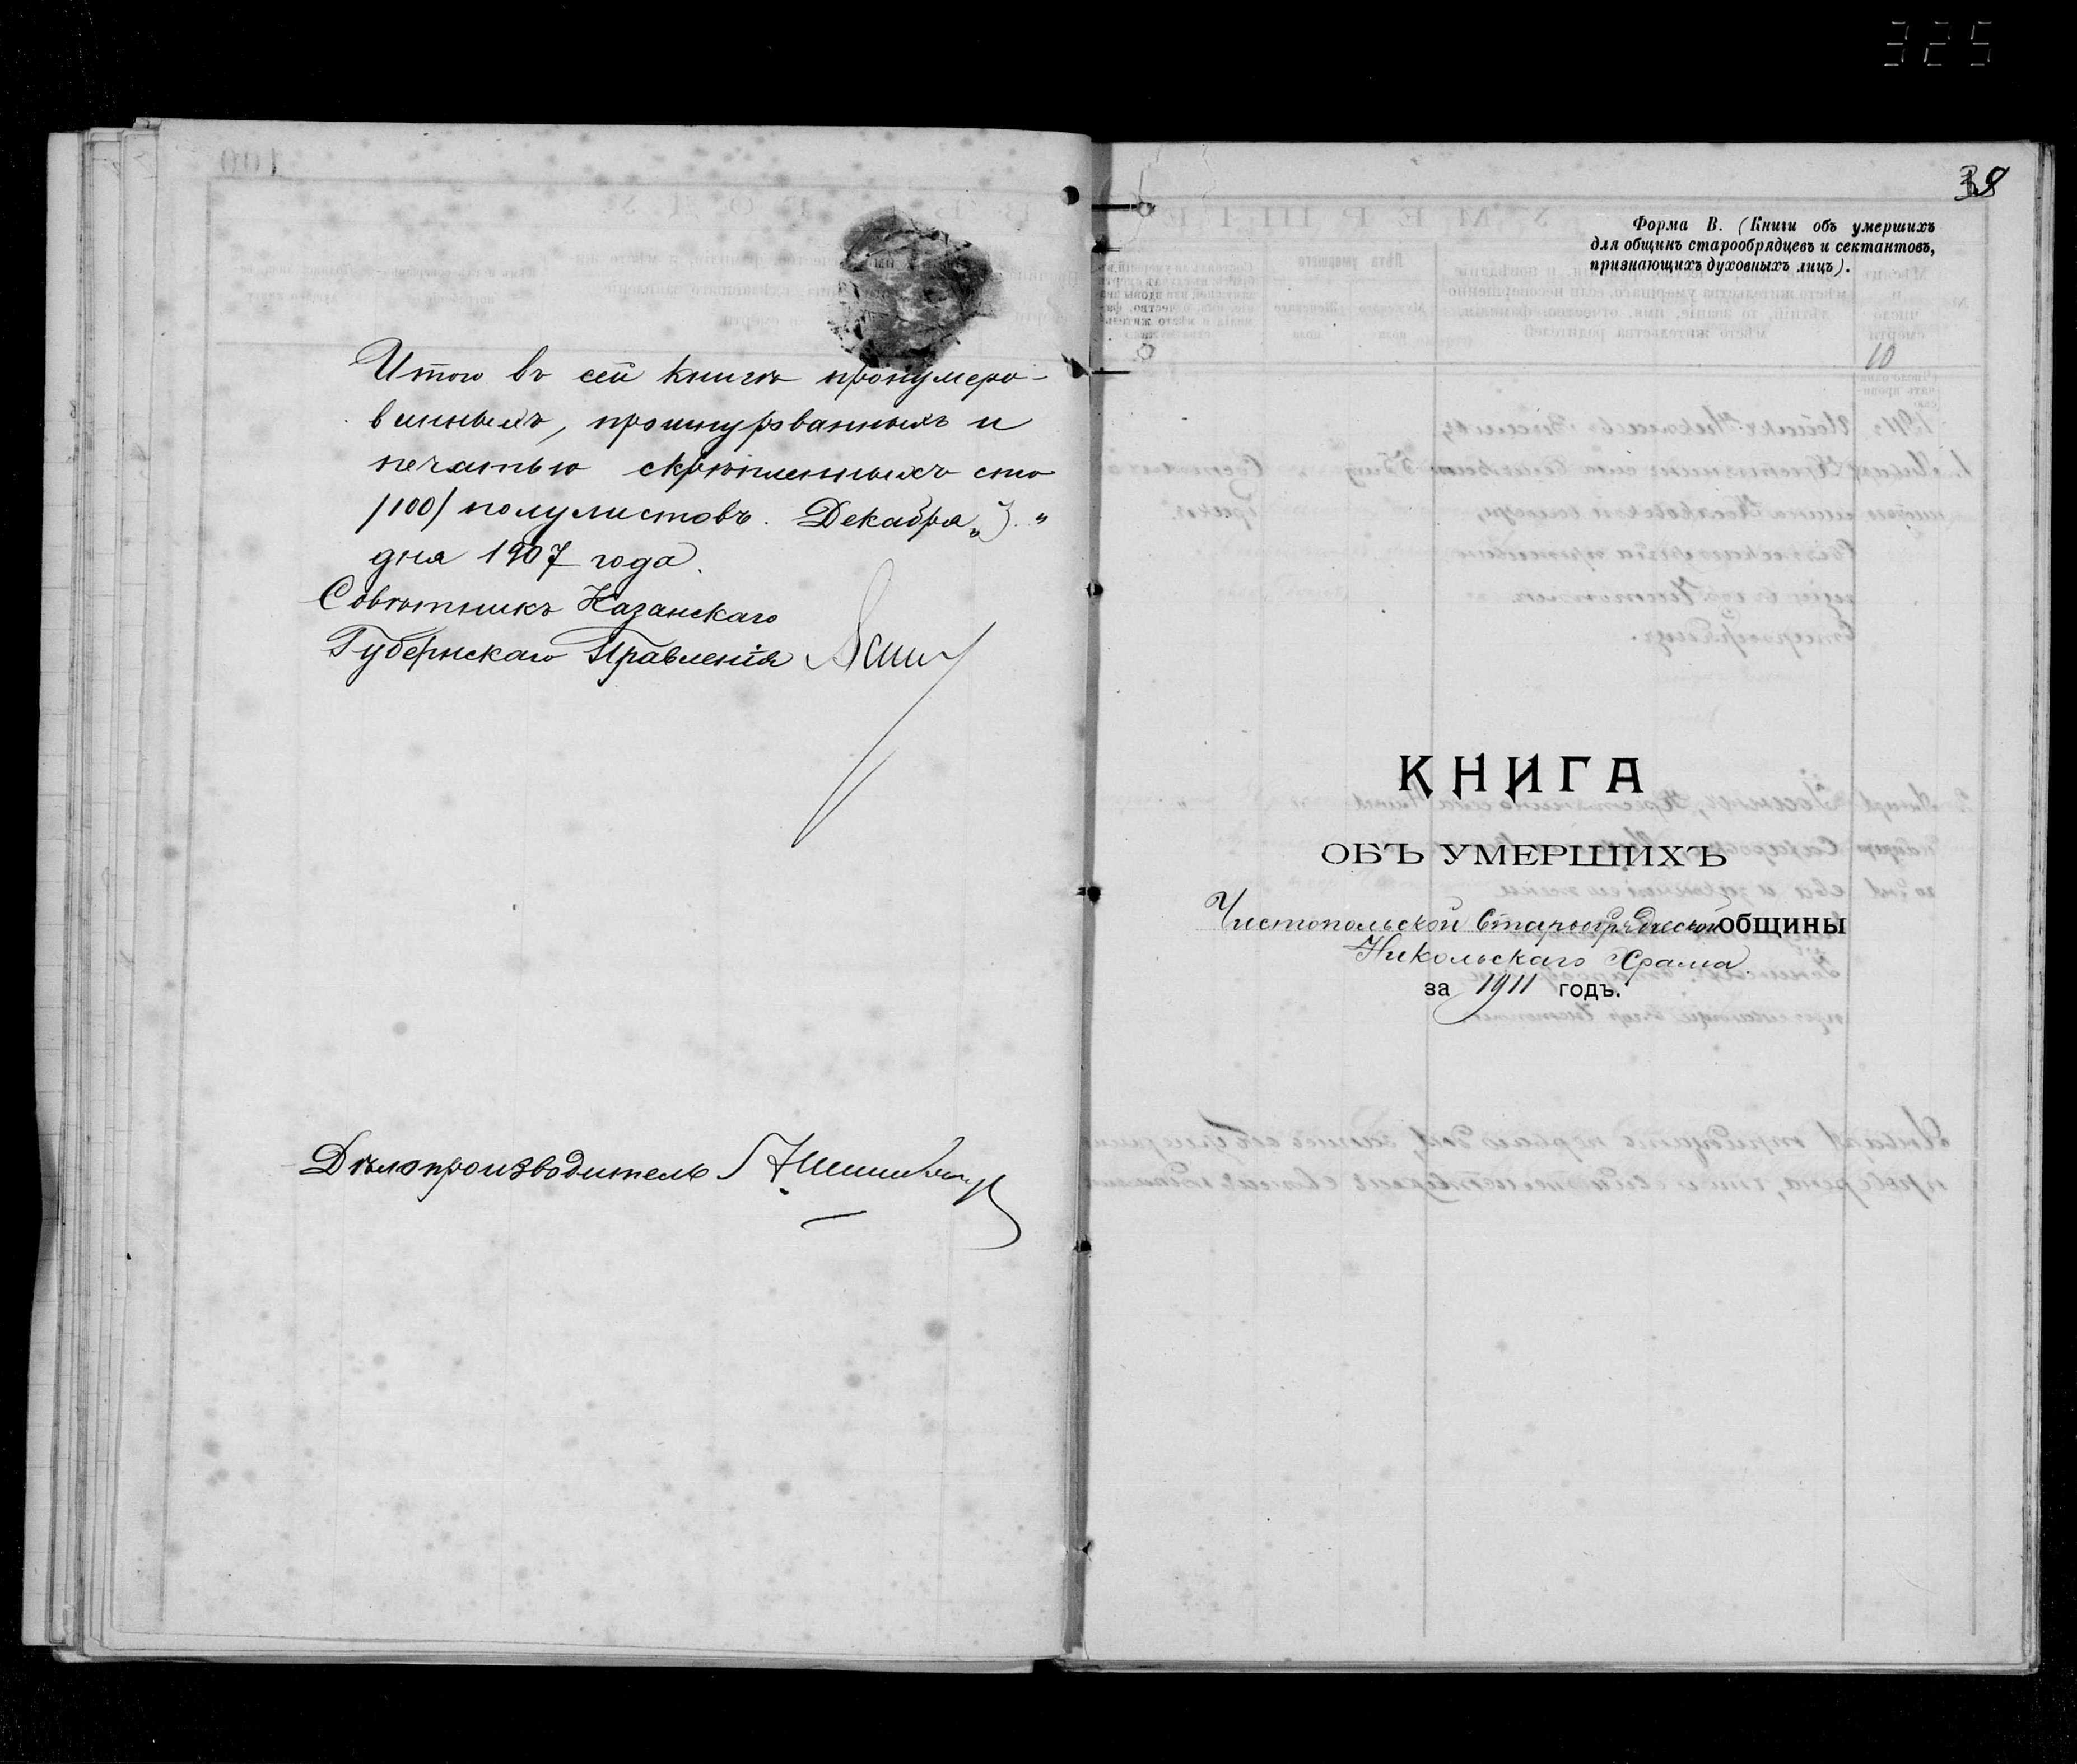 325
Итого въ сей книгѣ пронумеро-
ванныхъ, прошнурованныхъ и
печатью скрѣпленныхъ сто
/100/ полулистовъ. Декабря „3."
дня 1907 года.
Совѣтникъ Казанскаго
Губернскаго Правленія
Дѣлопроизводитель
Форма В. (Книги объ умершихъ
для общинъ старообрядцевъ и сектантовъ,
признающихъ духовныхъ лицъ).
10
КНИГА
ОБЪ УМЕРШИХЪ
Чистопольской Старообрядческой общины
Никольскаго Храма.
за 1911 годъ.